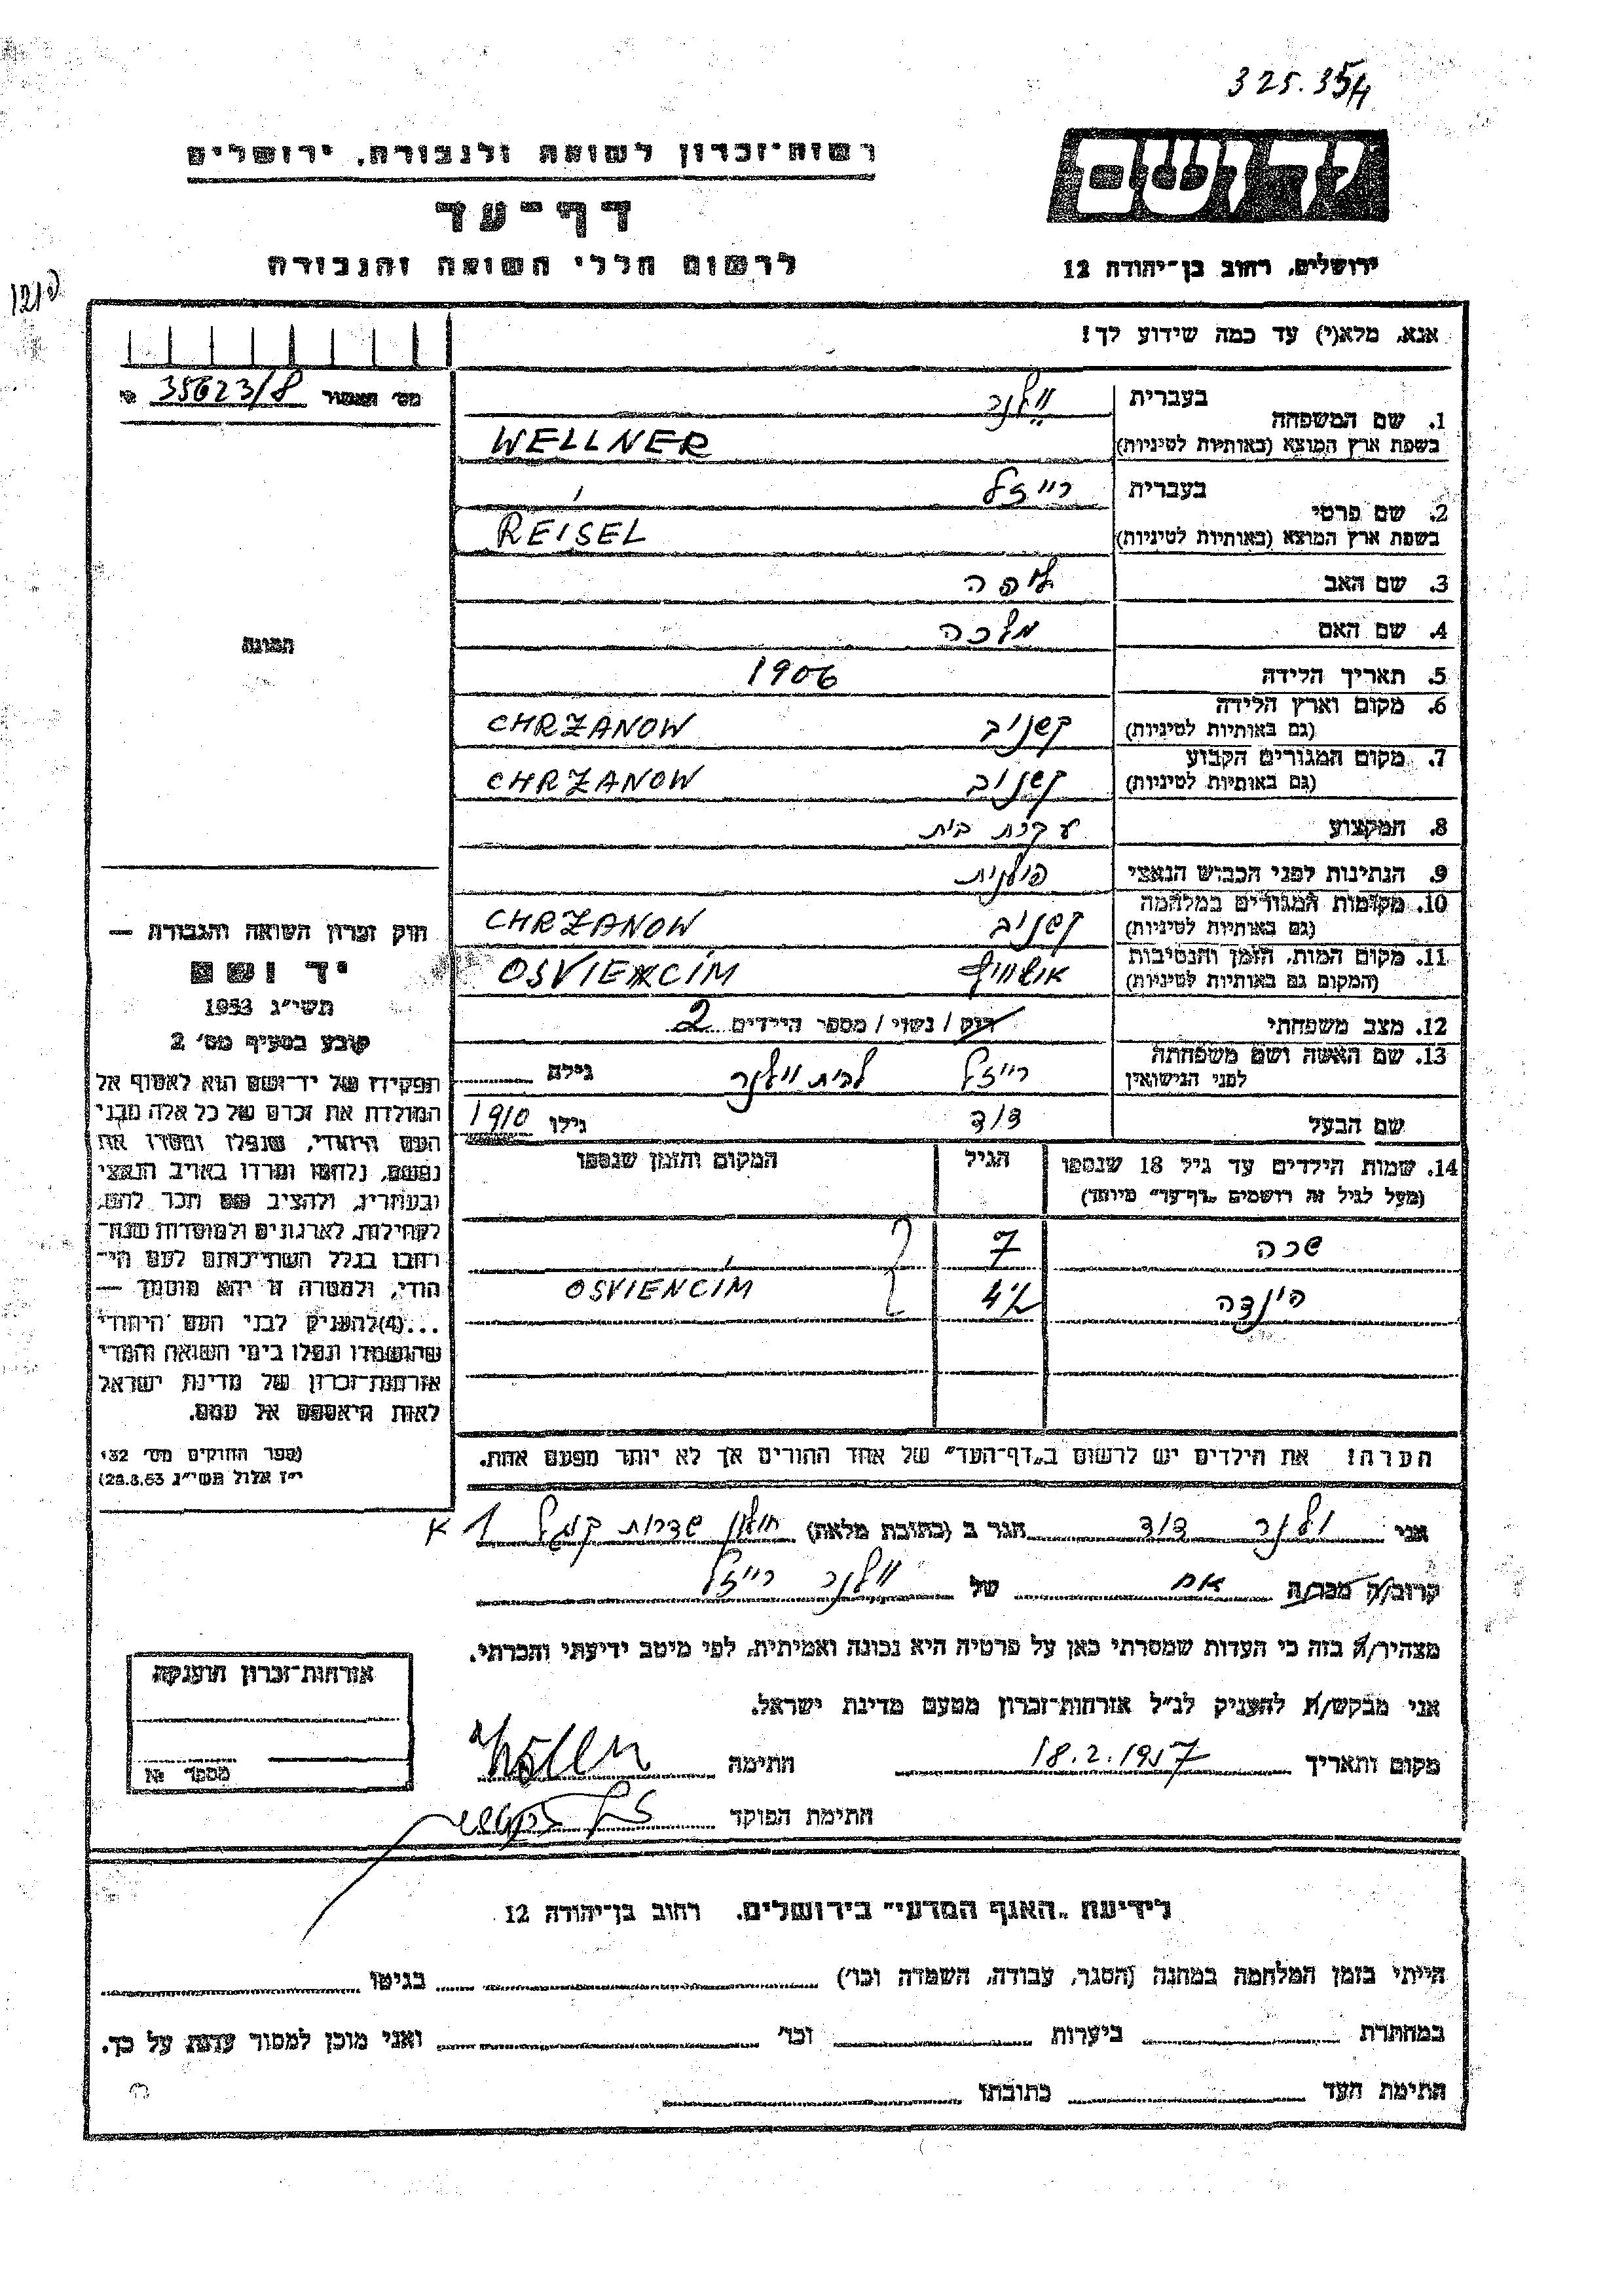 325.354
רשות־זכרון לשואה ולגבורה, ירושלים
יד ושם
דף־עד
לרשום חללי השואה והגבורה
ירושלים, רחוב בן־יהודה 12
אנא, מלא(י) עד כמה שידוע לך!
מס' 35623/8
1. שם המשפחה בעברית וילנר
בשפת ארץ המוצא (באותיות לטיניות) WELLNER
2. שם פרטי בעברית רייזל
בשפת ארץ המוצא (באותיות לטיניות) REISEL
3. שם האב ליפה
4. שם האם מלכה
התמונה
5. תאריך הלידה 1906
6. מקום וארץ הלידה (גם באותיות לטיניות) קשניב CHRZANOW
7. מקום המגורים הקבוע (גם באותיות לטיניות) קשניב CHRZANOW
8. המקצוע עקרת בית
9. הנתינות לפני הכבוש הנאצי פולנית
10. מקומות המגורים במלחמה (גם באותיות לטיניות) קשניב CHRZANOW
11. מקום המות, הזמן והנסיבות (המקום גם באותיות לטיניות) אושוויץ OSVIENCIM
12. מצב משפחתי רווק / נשוי / מספר הילדים 2
13. שם האשה ושם משפחתה לפני הנישואין רייזל לבית וילנר גילה
שם הבעל דוד גילו 1910
14. שמות הילדים עד גיל 18 שנספו הגיל המקום והזמן שנספו
(מעל לגיל זה רושמים „דף־עד” מיוחד)
שבה 7
הינדה 4½ OSVIENCIM
הערה: את הילדים יש לרשום ב„דף־העד” של אחד ההורים אך לא יותר מפעם אחת.
חוק זכרון השואה והגבורה —
יד ושם
תשי״ג 1953
קובע בסעיף מס' 2
תפקידו של יד־ושם הוא לאסוף אל
המולדת את זכרם של כל אלה מבני
העם היהודי, שנפלו ומסרו את
נפשם, נלחמו ומרדו באויב הנאצי
ובעוזריו, ולהציב שם וזכר להם,
לקהילות, לארגונים ולמוסדות שנח־
רבו בגלל השתייכותם לעם הי־
הודי, ולמטרה זו יהא מוסמך —
...(4) להעניק לבני העם היהודי
שהושמדו ונפלו בימי השואה והמרי
אזרחות־זכרון של מדינת ישראל
לאות היאספם אל עמם.
(ספר החוקים מס' 132
י״ז אלול תשי״ג 28.8.53)
אני ולנר דוד הגר ב (כתובת מלאה) חולון שדרות קוגל 1 א
קרוב/ה מכר/ה אח של וילנר רייזל
מצהיר/ה בזה כי העדות שמסרתי כאן על פרטיה היא נכונה ואמיתית, לפי מיטב ידיעתי והכרתי.
אני מבקש/ת להעניק לנ״ל אזרחות־זכרון מטעם מדינת ישראל.
מקום ותאריך 18.2.1957 חתימה
חתימת הפוקד
אזרחות־זכרון הוענקה
מספר №
לידיעת „האגף המדעי” בירושלים, רחוב בן־יהודה 12
הייתי בזמן המלחמה במחנה (הסגר, עבודה, השמדה וכו') בגיטו
במחתרת ביערות וכו' ואני מוכן למסור עדות על כך.
חתימת העד כתובתו